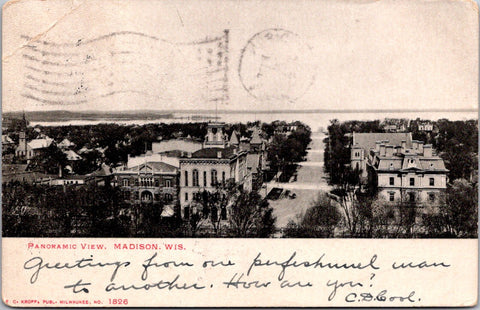 PANORAMIC VIEW. MADISON. WIS.
Greetings from one professional man
to another. How are you?
C.D. Cool.
E. C. KROPP. PUBL. MILWAUKEE, NO. 1826